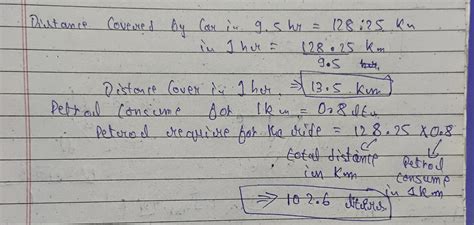 Distance Covered By Car in 9.5 hr = 128.25 Km
in 1 hr = 128.25 Km
9.5 hr
Distance Cover in 1 hr ⇒ 13.5 Km
Petrol Consume for 1 km = 0.8 ltr
Petrol require for the ride = 128.25 × 0.8
total distance
in Km
Petrol
Consume
in 1 km
⇒ 102.6 liters